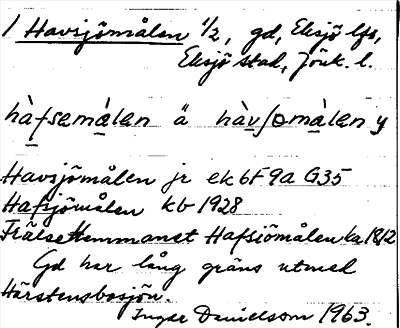 1 Havsjömålen 1/2, gd, Eksjö lfs,
Eksjö stad, Jönk. l.
hàfsemàlen ä hàvʃomàlen y
Havsjömålen jr ek bl 9a G35
Hafsjömålen kb 1928
Frälsehemmanet Hafsiömålen ka 1812
Gd har lång gräns utmed
Härstensbosjön.
Ingar Danielsson 1963.